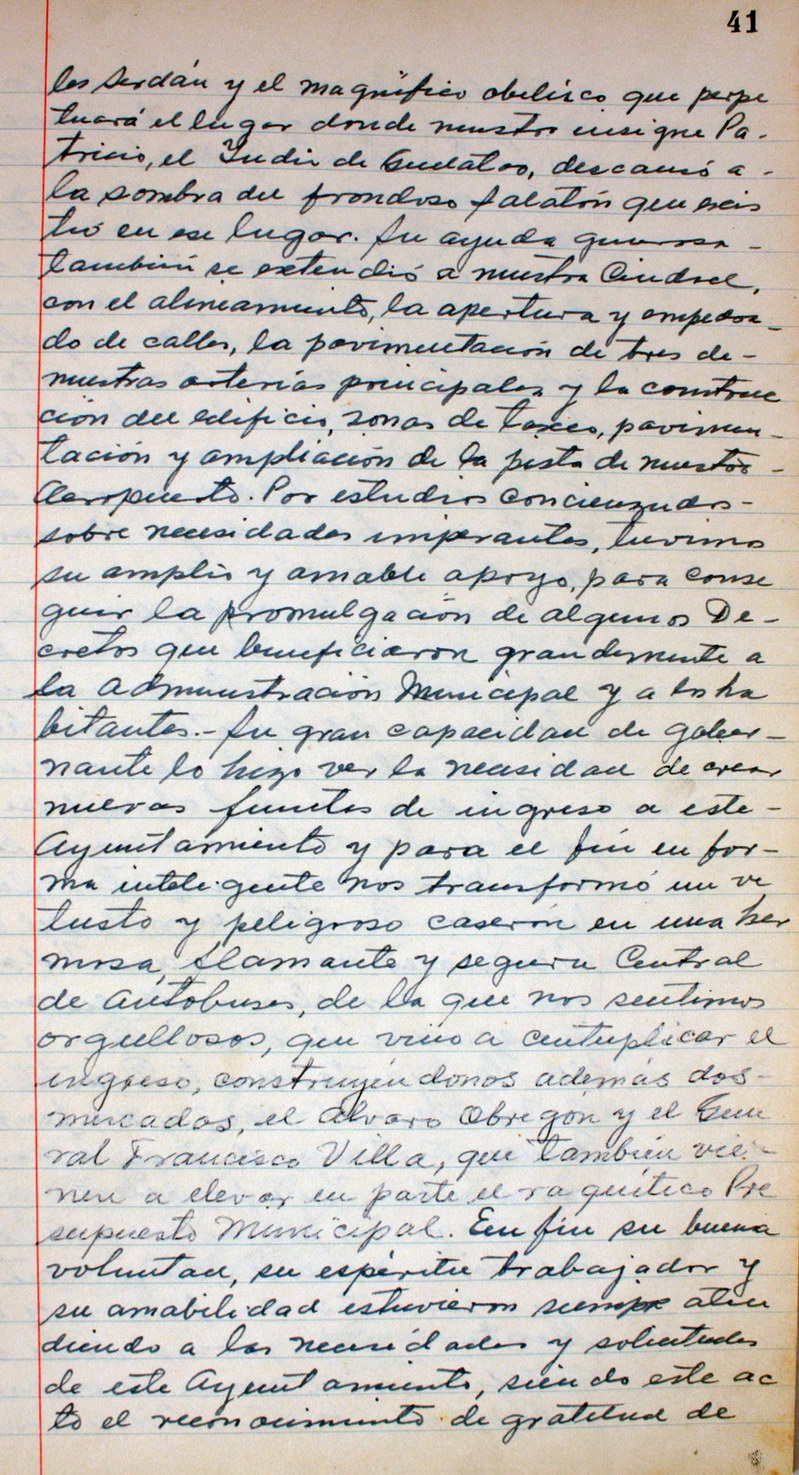 41
les Serdán y el magnífico obelisco que perpe
tuará el lugar donde nuestro insigne Pa-
tricio, el Indio de Guelatao, descansó a -
la sombra del frondoso Salatón que exis
tió en ese lugar. Su ayuda generosa -
también se extendió a nuestra Ciudad,
con el alineamiento, la apertura y empedra-
do de calles, la pavimentación de tres de-
nuestras arterias principales y la construc
ción del edificio, zonas de taxeo, pavimen-
tación y ampliación de la pista de nuestro -
Aeropuerto. Por estudios concienzudos-
sobre necesidades imperantes, tuvimos
su amplio y amable apoyo, para conse
guir la promulgación de algunos De-
cretos que beneficiaron grandemente a
la administración Municipal y a los ha
bitantes.- Su gran capacidad de gober-
nante lo hizo ver la necesidad de crear
nuevas fuentes de ingreso a este-
Ayuntamiento y para el fin en for-
ma inteligente nos transformó un ve
tusto y peligroso caserón en una her
mosa, flamante y segura Central
de Autobuses, de la que nos sentimos
orgullosos, que vino a centuplicar el
ingreso, construyéndonos además dos-
mercados, el Alvaro Obregón y el Gene
ral Francisco Villa, que también vie-
nen a elevar en parte el raquítico Pre
supuesto Municipal. En fin su buena
voluntad, su espíritu trabajador y
su amabilidad estuvieron siempre aten
diendo a las necesidades y solicitudes
de este Ayuntamiento, siendo este ac
to el reconocimiento de gratitud de